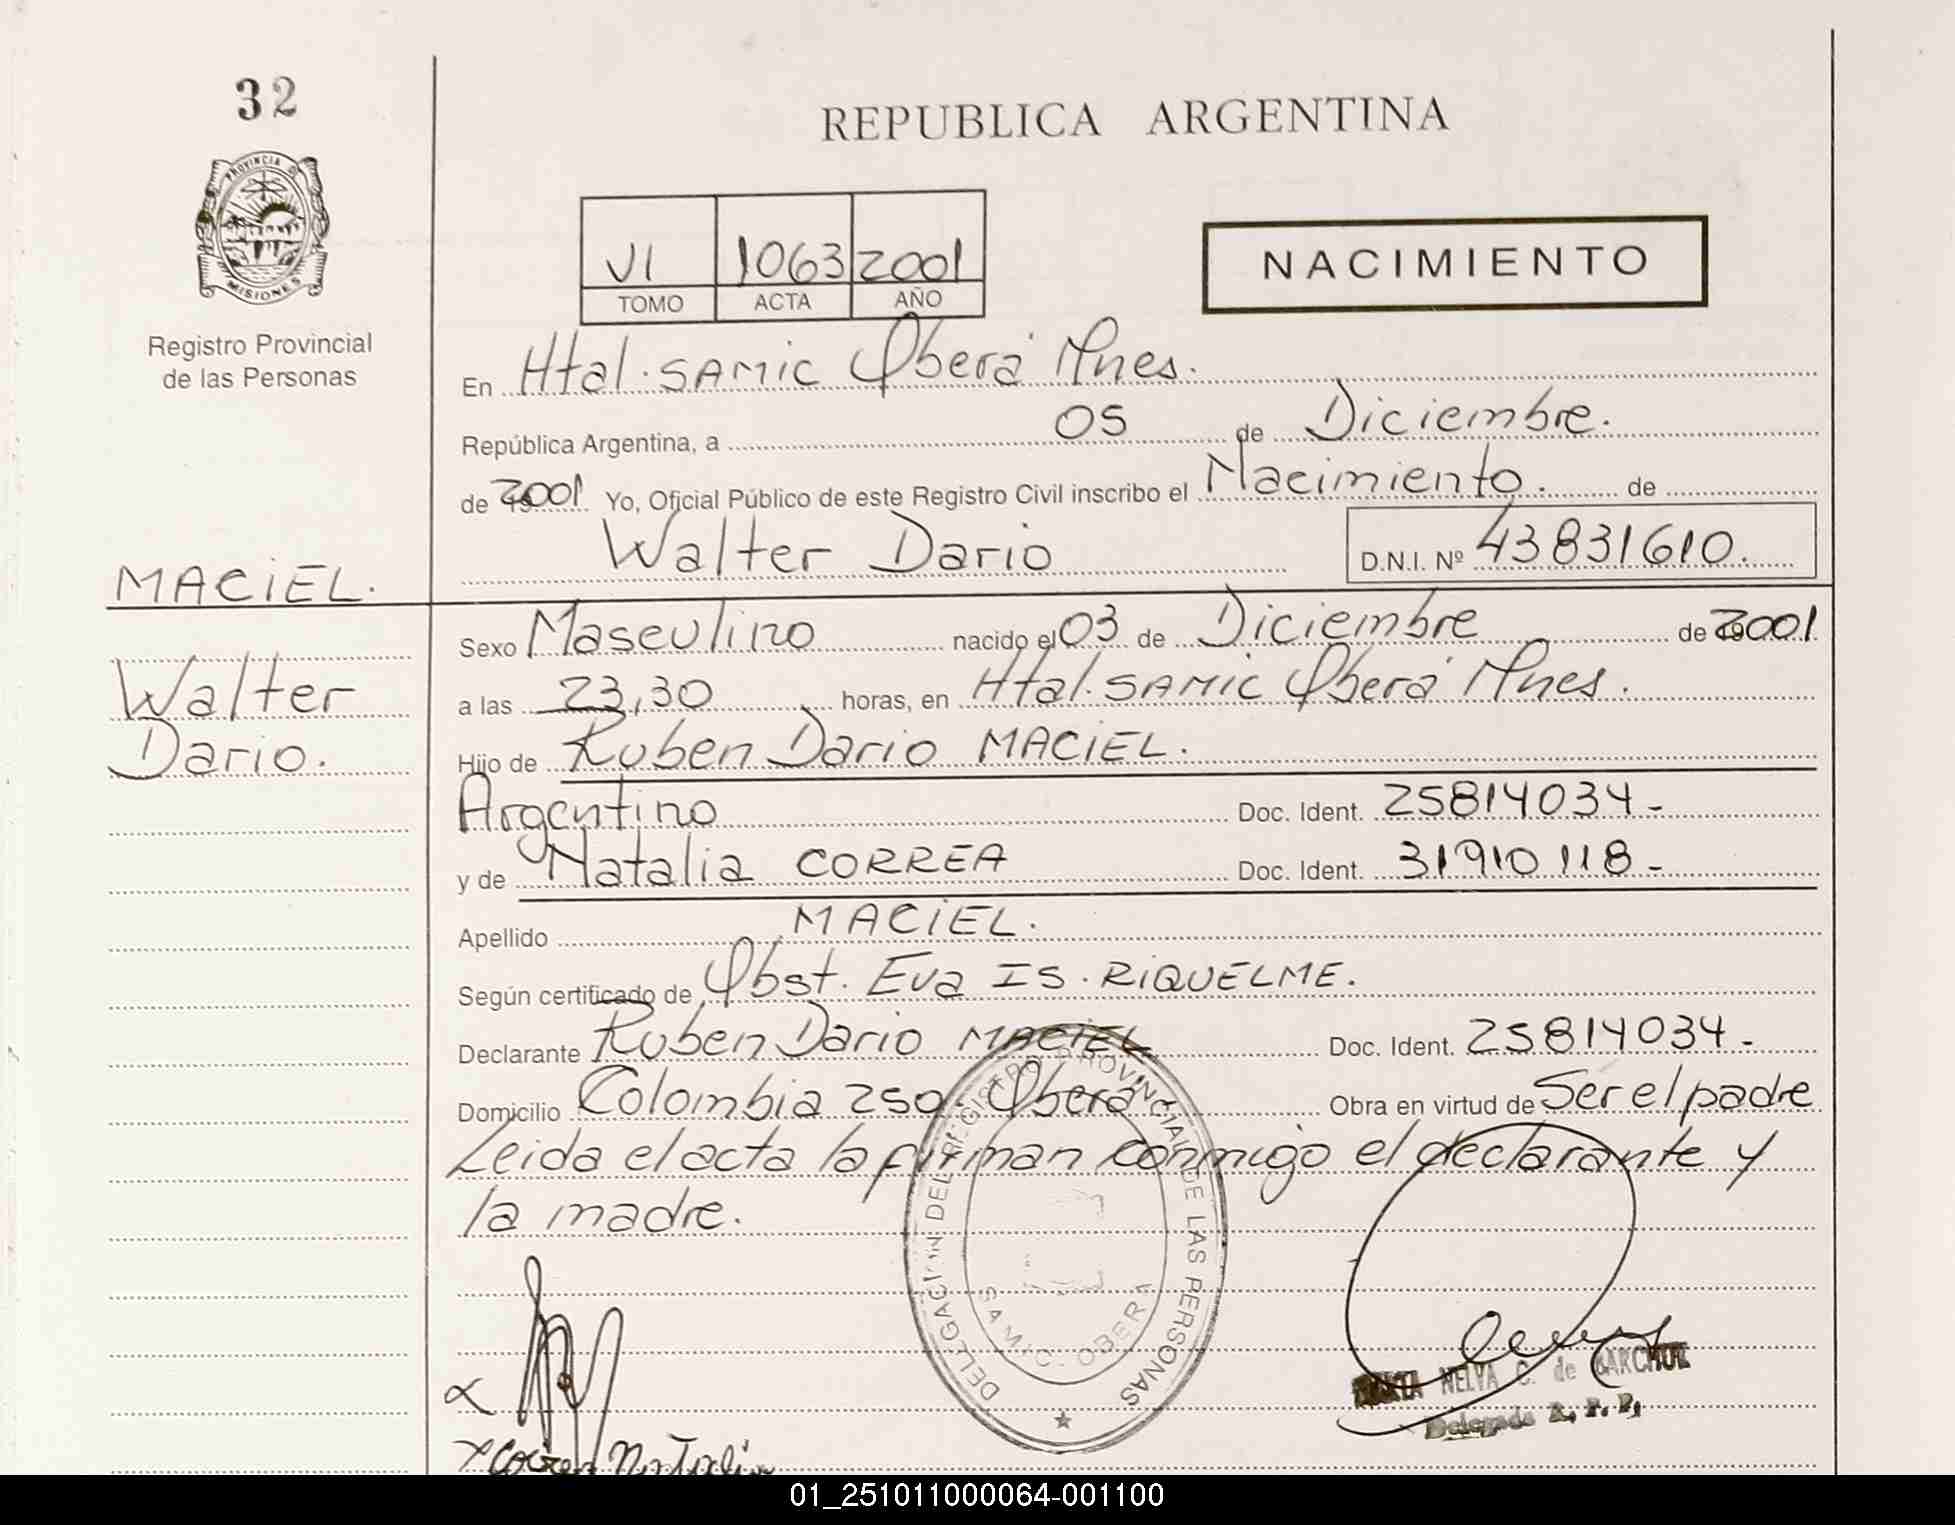 32
PROVINCIA DE
MISIONES
Registro Provincial
de las Personas
MACIEL.
Walter
Dario.
REPUBLICA ARGENTINA
VI 1063 2001
TOMO ACTA AÑO
NACIMIENTO
En Htal. SAMIC Oberá Mnes.
República Argentina, a 05 de Diciembre.
de 2001 Yo, Oficial Público de este Registro Civil inscribo el Nacimiento. de
Walter Dario D.N.I. Nº 43831610.
Sexo Masculino nacido el 03 de Diciembre de 2001
a las 23,30 horas, en Htal. SAMIC Oberá Mnes.
Hijo de Ruben Dario MACIEL.
Argentino Doc. Ident. 25814034-
y de Natalia CORREA Doc. Ident. 31910118-
Apellido MACIEL.
Según certificado de Obst. Eva IS. RIQUELME.
Declarante Ruben Dario MACIEL Doc. Ident. 25814034-
Domicilio Colombia 250. Oberá Obra en virtud de Ser el padre
Leida el acta la firman conmigo el declarante y
la madre.
DELEGACION DEL REGISTRO PROVINCIAL DE LAS PERSONAS
SAMIC - OBERA
NELVA C. de
Delegada R. P. P.
x Correa Natalia
01_251011000064-001100